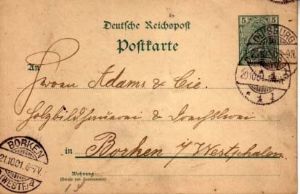 Deutsche Reichspost
Postkarte
5 5
DUISBURG
20.10.01
An
Herren Adams & Cie.
Holzbildhauerei & Drechslerei
in Borken i/Westphalen
Wohnung
(Straße und Hausnummer)
BORKEN
21.10.01. 6-7V.
(WESTF.)